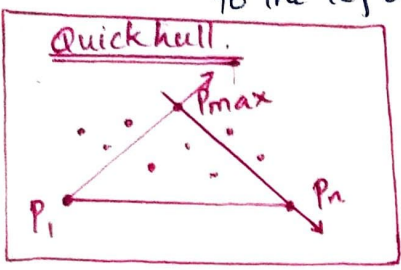 to the
Quickhull.
Pmax
P1
Pn